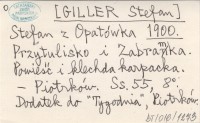 [GILLER Stefan]
Stefan z Opatówka 1900.
Przytulisko i Zabrańm.
Powieść i klechda karpacka.
– Piotrków. Ss. 55, 8°
Dodatek do "Tygodnia", Piotrków.